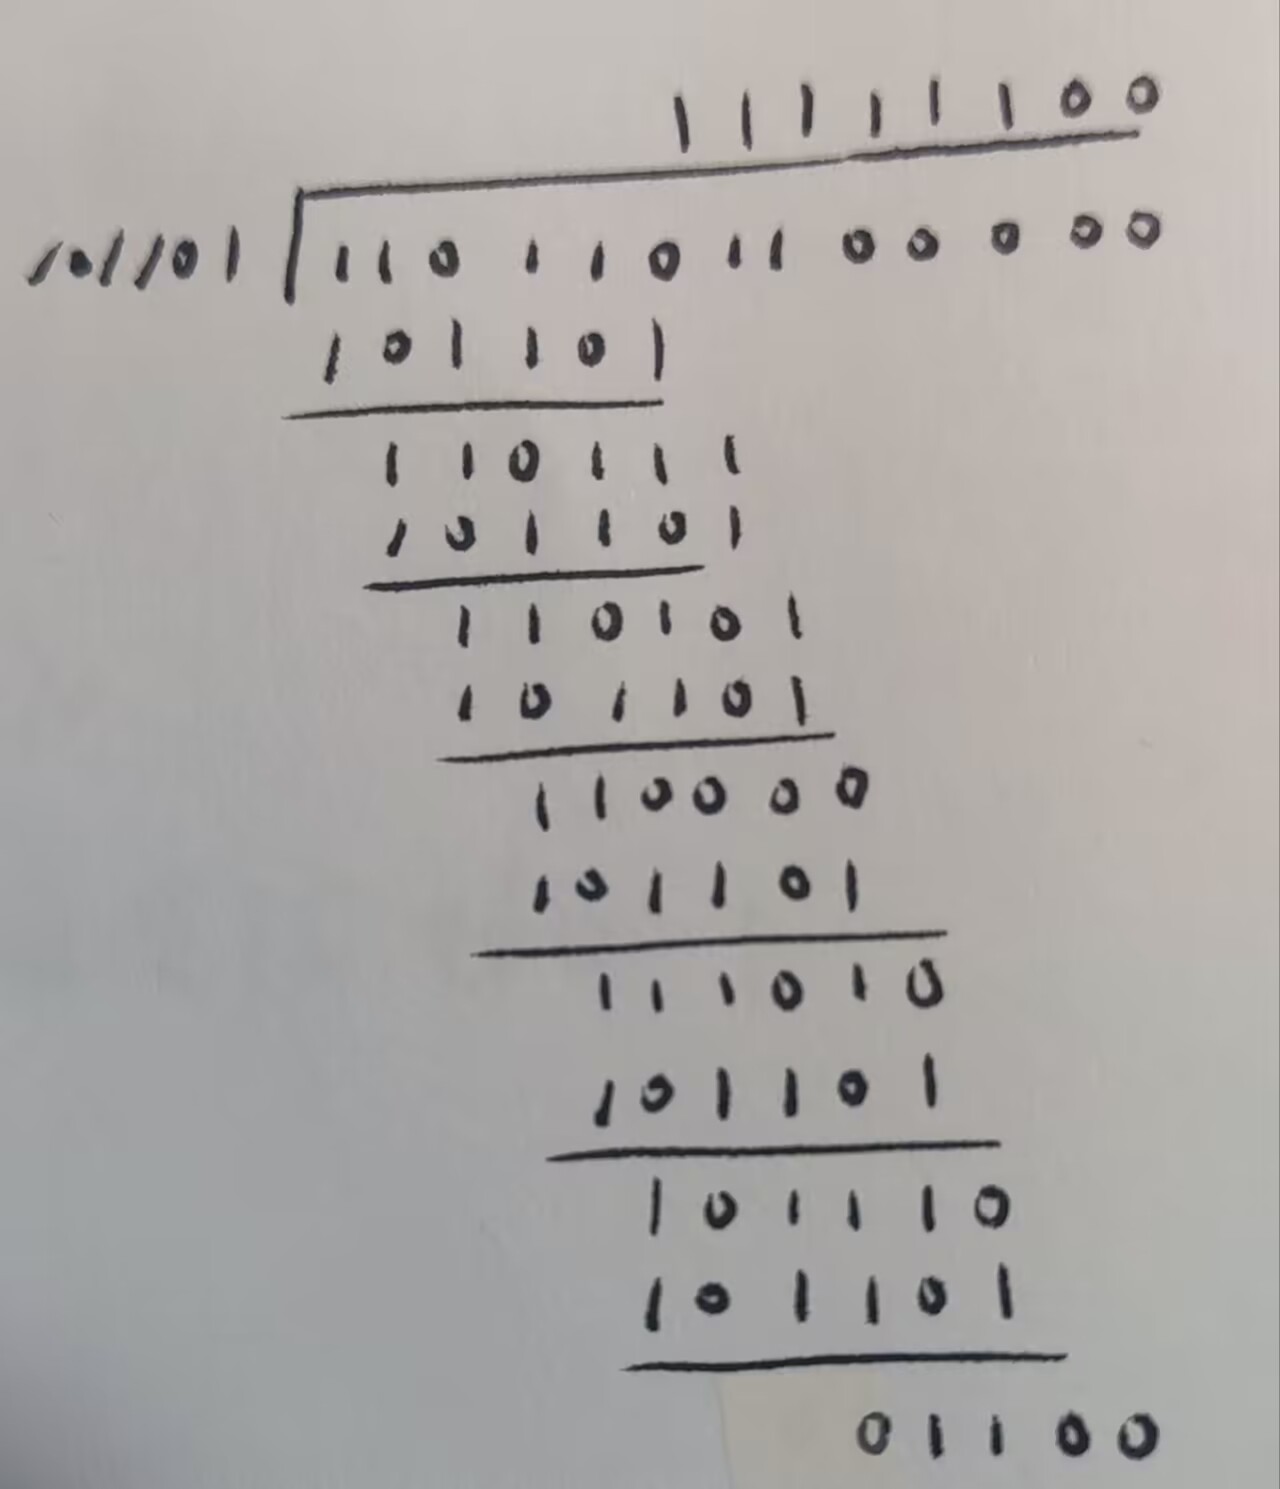 11111100
101101 1101101100000
101101
110111
101101
110101
101101
110000
101101
111010
101101
101110
101101
01100